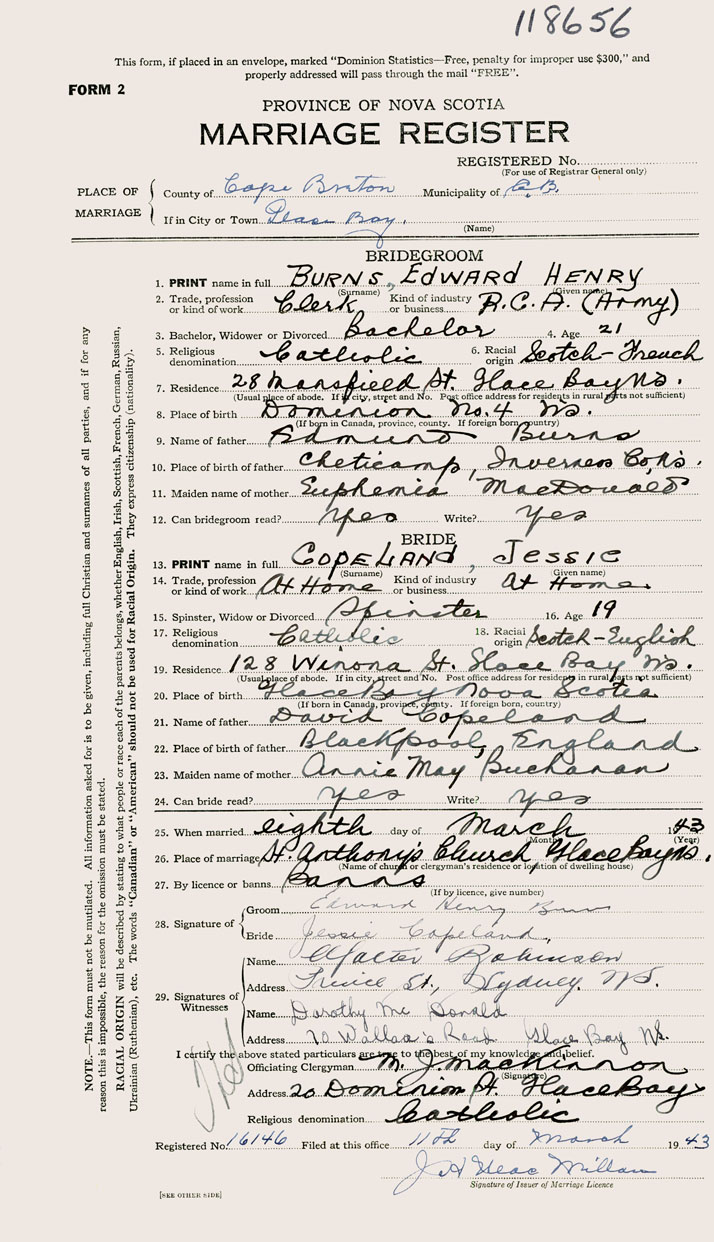 118656
This form, if placed in an envelope, marked "Dominion Statistics—Free, penalty for improper use $300," and
properly addressed will pass through the mail "FREE".
FORM 2
PROVINCE OF NOVA SCOTIA
MARRIAGE REGISTER
REGISTERED No.
(For use of Registrar General only)
PLACE OF MARRIAGE
County of Cape Breton Municipality of C.B.
If in City or Town Glace Bay.
(Name)
BRIDEGROOM
1. PRINT name in full BURNS, EDWARD HENRY
(Surname) (Given name)
2. Trade, profession or kind of work Clerk Kind of industry or business R.C.A. (Army)
3. Bachelor, Widower or Divorced Bachelor 4. Age 21
5. Religious denomination Catholic 6. Racial origin Scotch-French
7. Residence 28 Mansfield St. Glace Bay N.S.
(Usual place of abode. If in city, street and No. Post office address for residents in rural parts not sufficient)
8. Place of birth Dominion No. 4 N.S.
(If born in Canada, province, county. If foreign born, country)
9. Name of father Edmund Burns
10. Place of birth of father Cheticamp, Inverness Co. N.S.
11. Maiden name of mother Euphemia MacDonald
12. Can bridegroom read? Yes Write? Yes
BRIDE
13. PRINT name in full COPELAND, JESSIE
(Surname) (Given name)
14. Trade, profession or kind of work At Home Kind of industry or business At Home
15. Spinster, Widow or Divorced Spinster 16. Age 19
17. Religious denomination Catholic 18. Racial origin Scotch-English
19. Residence 128 Winona St. Glace Bay N.S.
(Usual place of abode. If in city, street and No. Post office address for residents in rural parts not sufficient)
20. Place of birth Glace Bay Nova Scotia
(If born in Canada, province, county. If foreign born, country)
21. Name of father David Copeland
22. Place of birth of father Blackpool, England
23. Maiden name of mother Annie May Buchanan
24. Can bride read? Yes Write? Yes
25. When married eighth day of March 1943
(Month) (Year)
26. Place of marriage St. Anthony's Church Glace Bay N.S.
(Name of church or clergyman's residence or location of dwelling house)
27. By licence or banns Banns
(If by licence, give number)
28. Signature of
Groom Edward Henry Burns
Bride Jessie Copeland
29. Signatures of Witnesses
Name Walter Robinson
Address Prince St., Sydney, N.S.
Name Dorothy Mc Donald
Address 70 Wallace's Road Glace Bay N.S.
I certify the above stated particulars are true to the best of my knowledge and belief.
Officiating Clergyman M. J. MacKinnon
(Signature)
Address 20 Dominion St. Glace Bay
Religious denomination Catholic
Registered No. 16146 Filed at this office 11th day of March 1943
J. A. MacMillan
Signature of Issuer of Marriage Licence
[SEE OTHER SIDE]
NOTE.—This form must not be mutilated. All information asked for is to be given, including full Christian and surnames of all parties, and if for any
reason this is impossible, the reason for the omission must be stated.
RACIAL ORIGIN will be described by stating to what people or race each of the parents belongs, whether English, Irish, Scottish, French, German, Russian,
Ukrainian (Ruthenian), etc. The words "Canadian" or "American" should not be used for Racial Origin. They express citizenship (nationality).